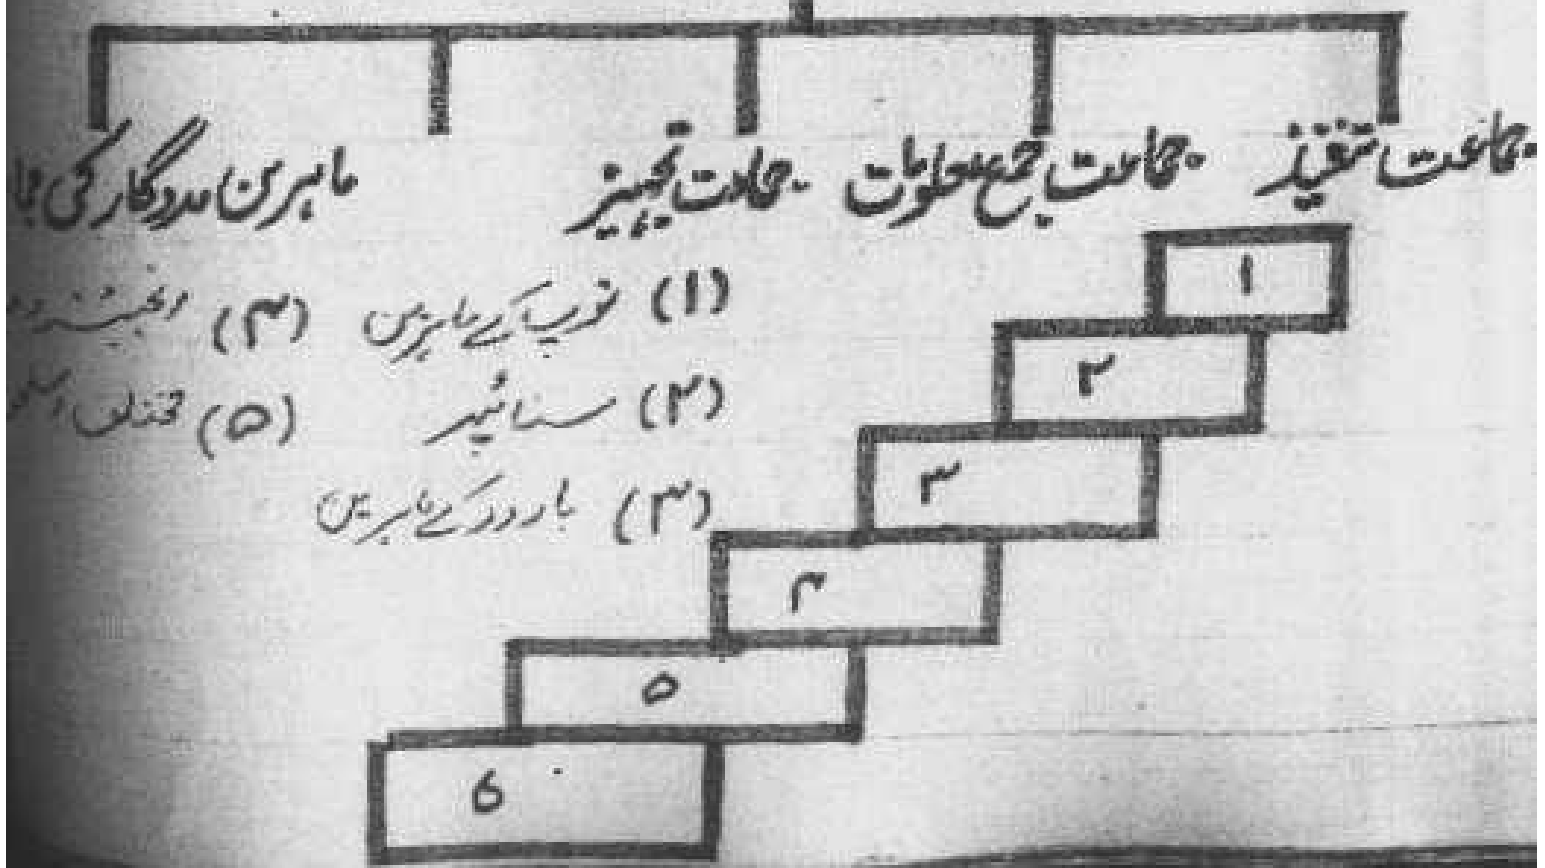 جماعت تنفیذ
جماعت جمع معلومات
جماعت تجہیز
ماہرین مددگار کی
(۱) توپ کے ماہرین
(۲) سنائپر
(۳) بارود کے ماہرین
(۴)
(۵) مختلف
۱
۲
۳
۴
۵
6